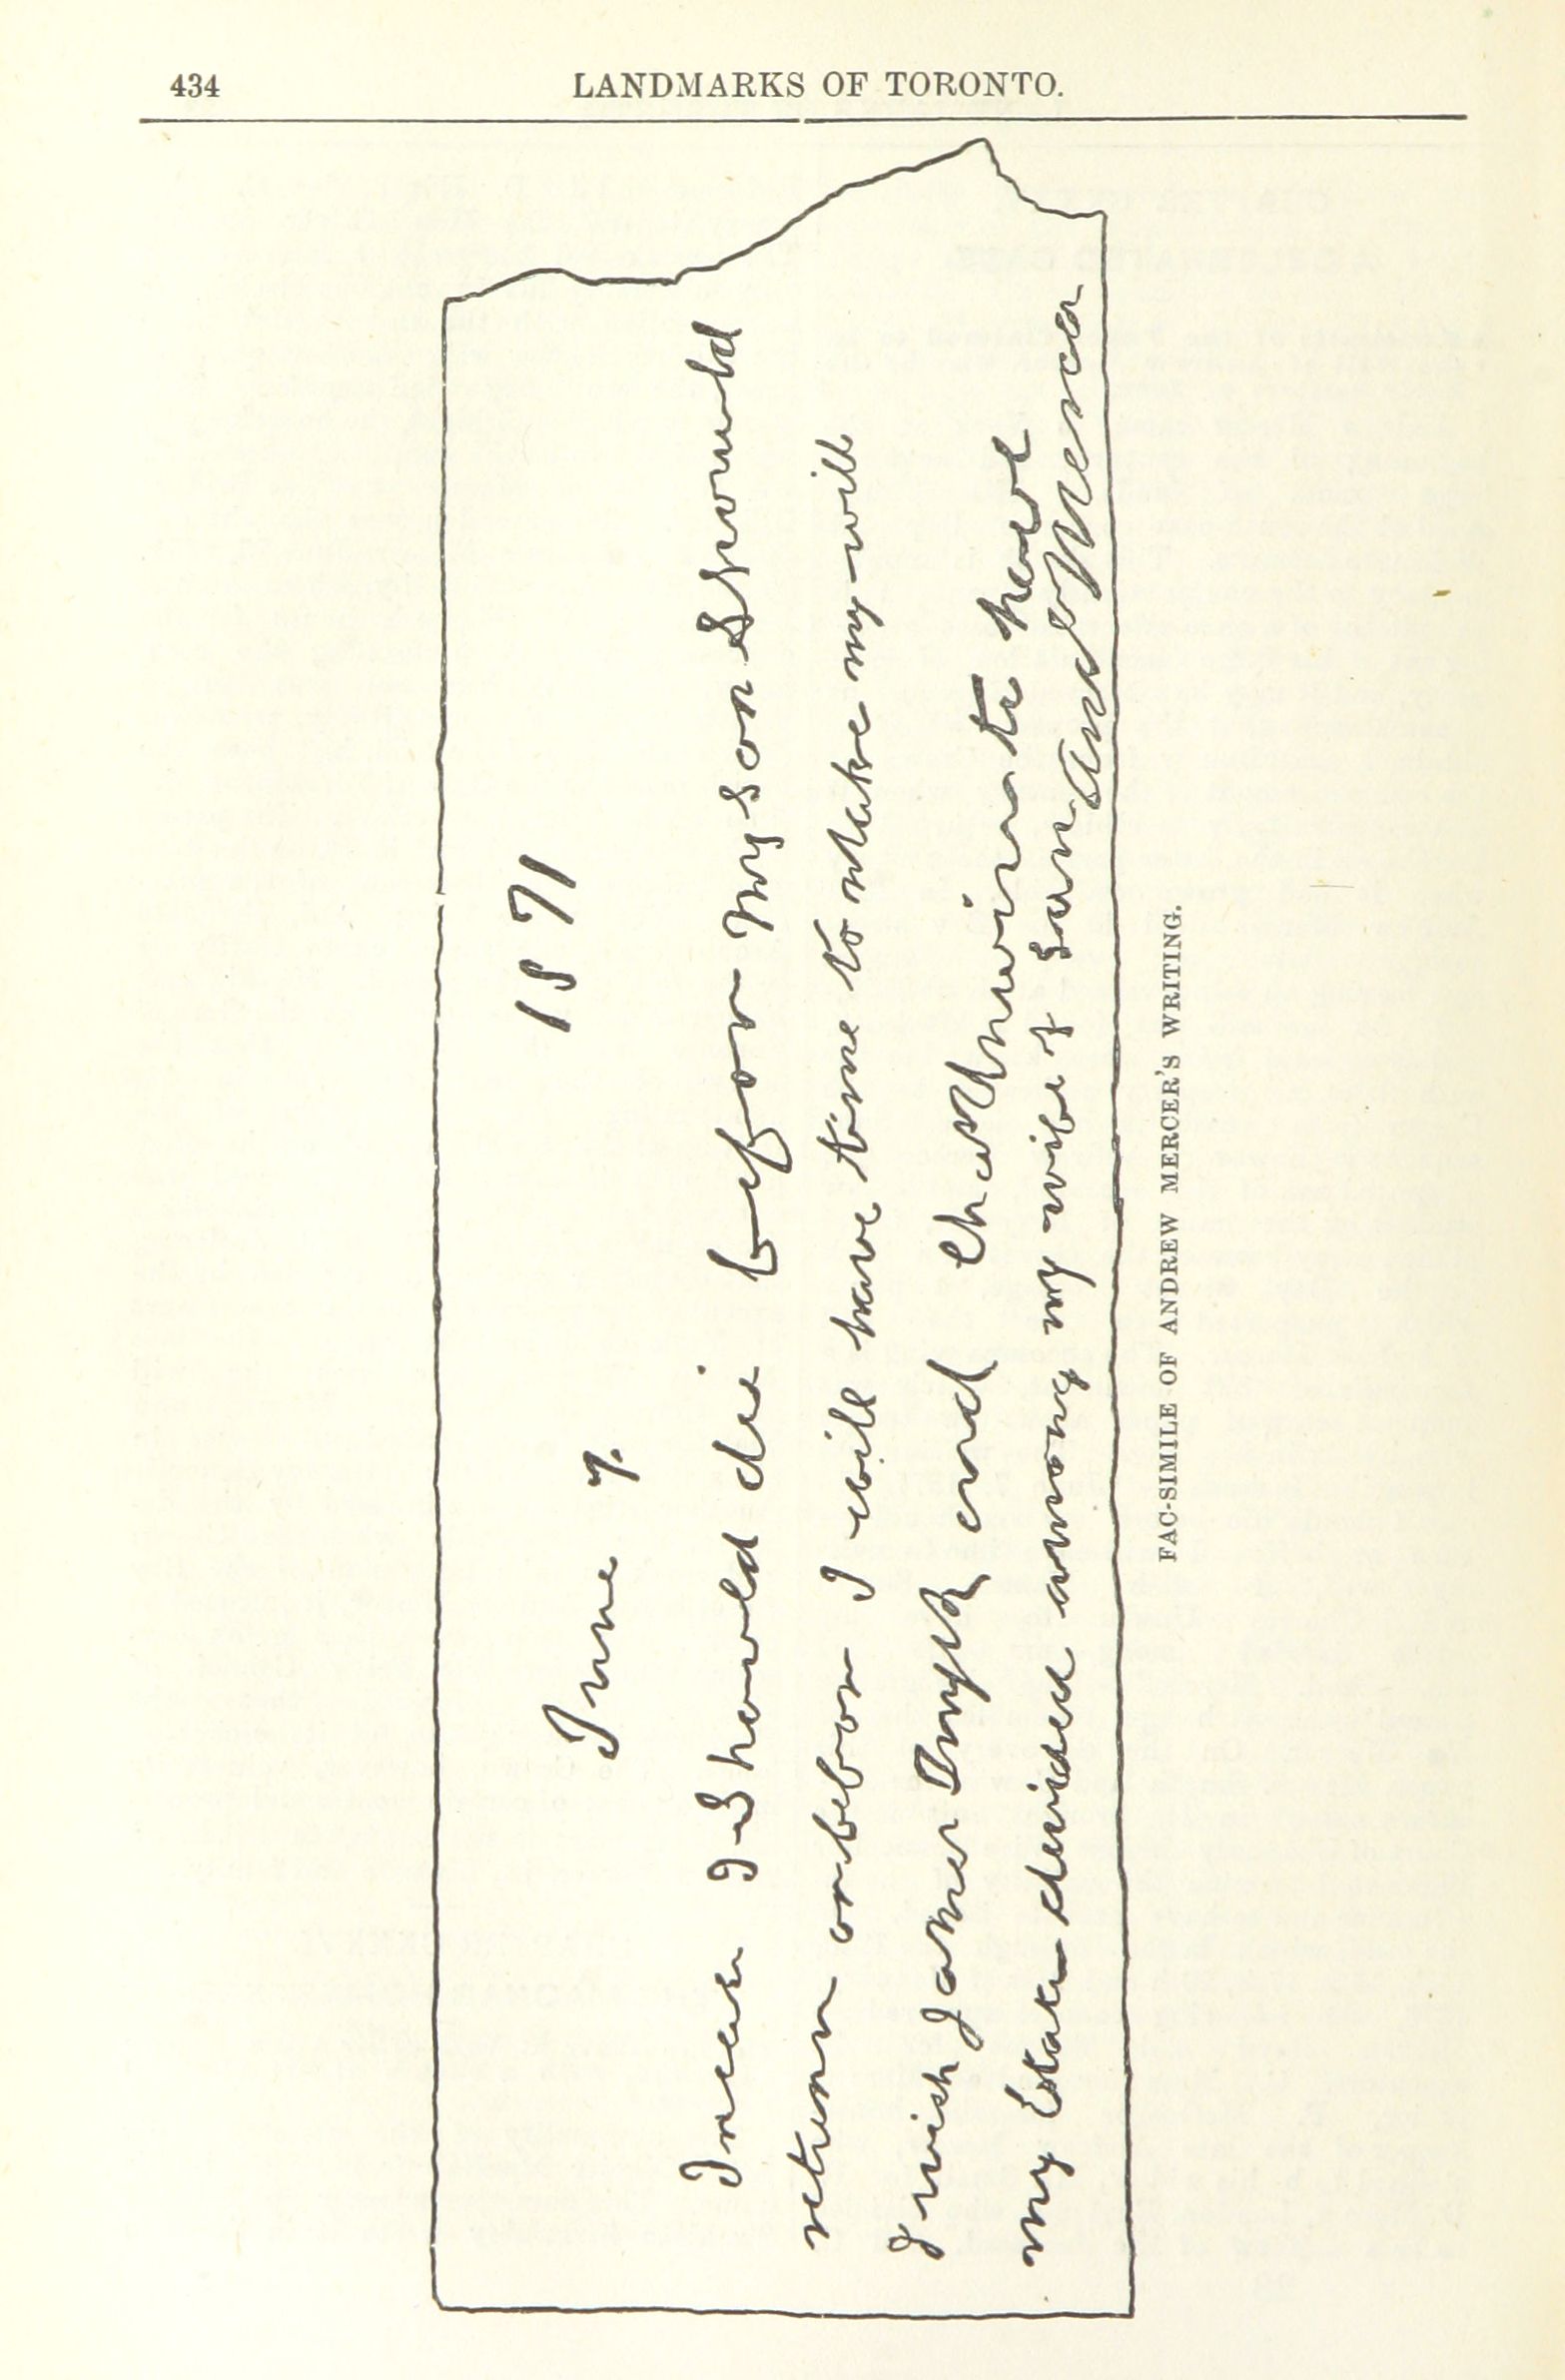 434 LANDMARKS OF TORONTO.
June 7. 1871
Incase I Should die befor My son Should
return or befor I will have time to make my will
I wish James Smyth and Chas Unwin to have
my Estate devided among my wife & Andw Mercer
FAC-SIMILE OF ANDREW MERCER'S WRITING.